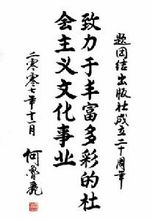 题团结出版社成立二十周年
致力于丰富多彩的社
会主义文化事业
二〇〇七年十二月
何鲁丽